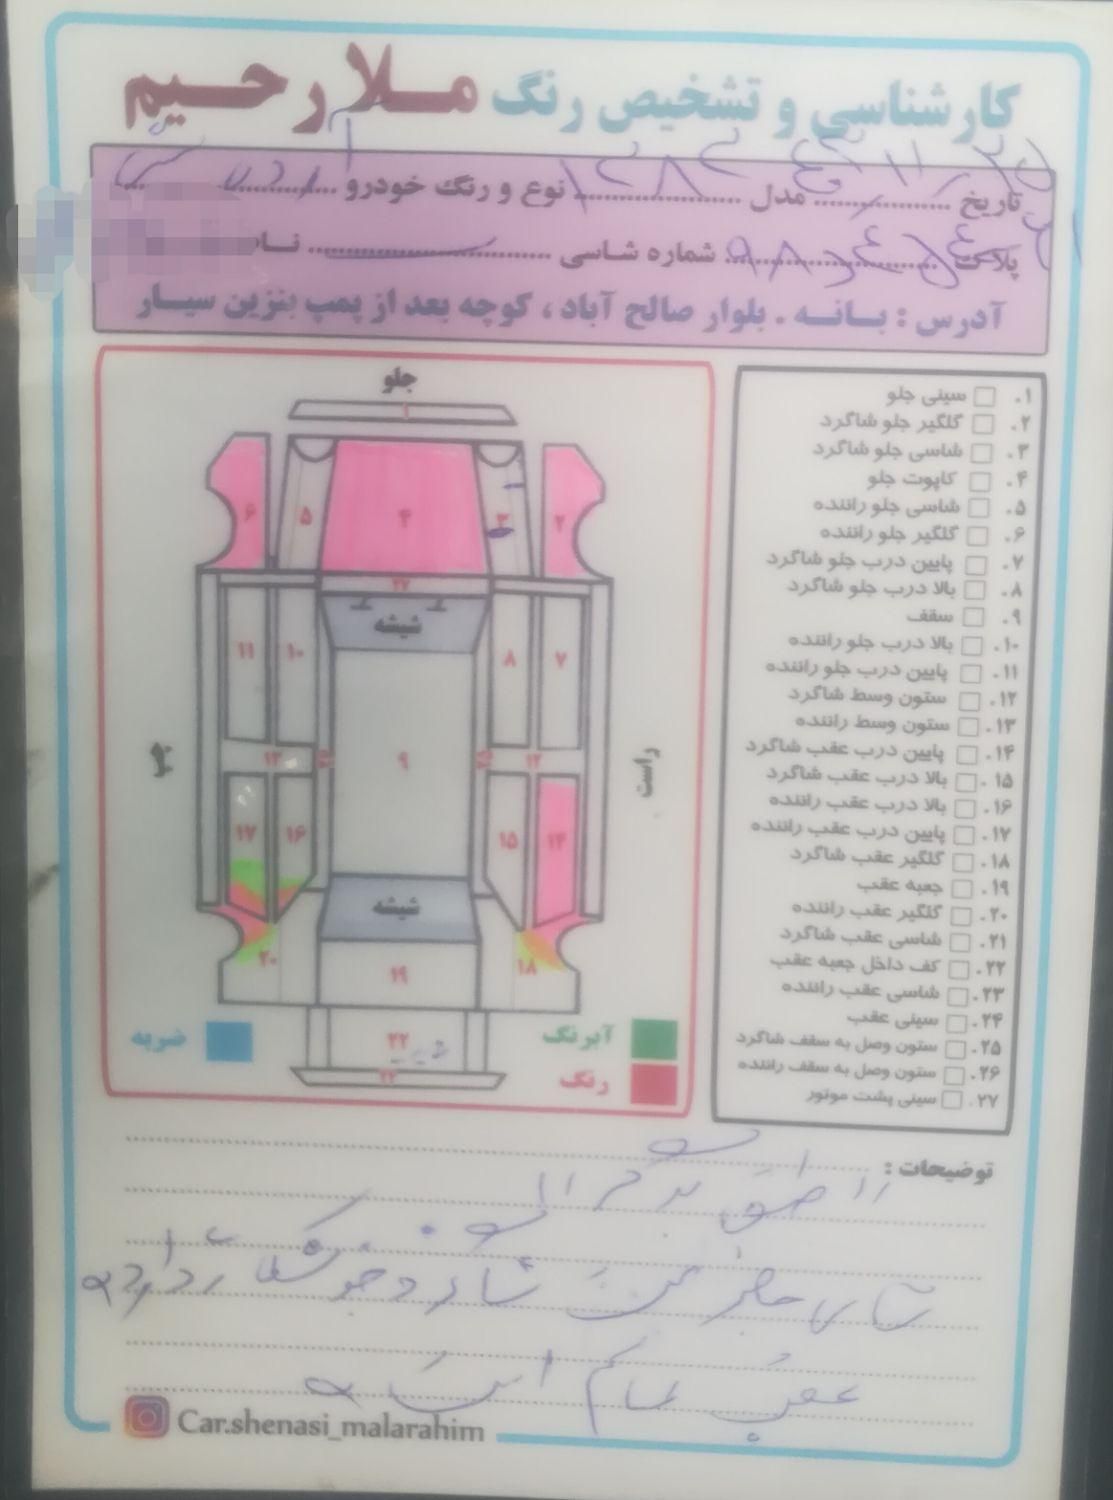 کارشناسی و تشخیص رنگ ملا رحیم
تاریخ مدل ۱۳۸۳ نوع و رنگ خودرو
پلاک شماره شاسی
آدرس : بانه . بلوار صالح آباد ، کوچه بعد از پمپ بنزین سیار
جلو
۱
۶ ۵ ۴ ۳ ۲
۲۷
شیشه
۱۱ ۱۰ ۸ ۷
چپ ۱۳ ۹ ۱۲ راست
۱۷ ۱۶ ۱۵ ۱۴
شیشه
۲۰ ۱۹ ۱۸
۲۲
ضربه آبرنگ
رنگ
۱. سینی جلو
۲. گلگیر جلو شاگرد
۳. شاسی جلو شاگرد
۴. کاپوت جلو
۵. شاسی جلو راننده
۶. گلگیر جلو راننده
۷. پایین درب جلو شاگرد
۸. بالا درب جلو شاگرد
۹. سقف
۱۰. بالا درب جلو راننده
۱۱. پایین درب جلو راننده
۱۲. ستون وسط شاگرد
۱۳. ستون وسط راننده
۱۴. پایین درب عقب شاگرد
۱۵. بالا درب عقب شاگرد
۱۶. بالا درب عقب راننده
۱۷. پایین درب عقب راننده
۱۸. گلگیر عقب شاگرد
۱۹. جعبه عقب
۲۰. گلگیر عقب راننده
۲۱. شاسی عقب شاگرد
۲۲. کف داخل جعبه عقب
۲۳. شاسی عقب راننده
۲۴. سینی عقب
۲۵. ستون وصل به سقف شاگرد
۲۶. ستون وصل به سقف راننده
۲۷. سینی پشت موتور
توضیحات :
عقب سالم است
Car.shenasi_malarahim